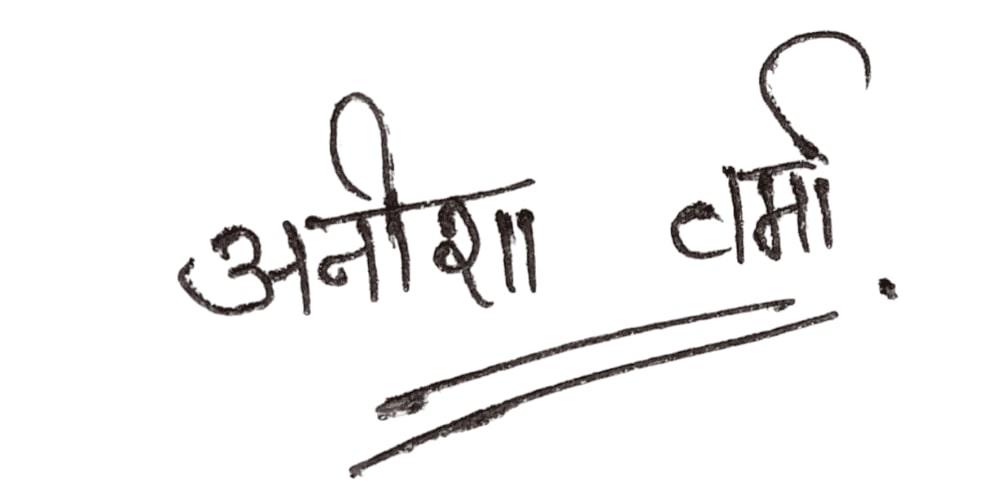 अनीशा वर्मा